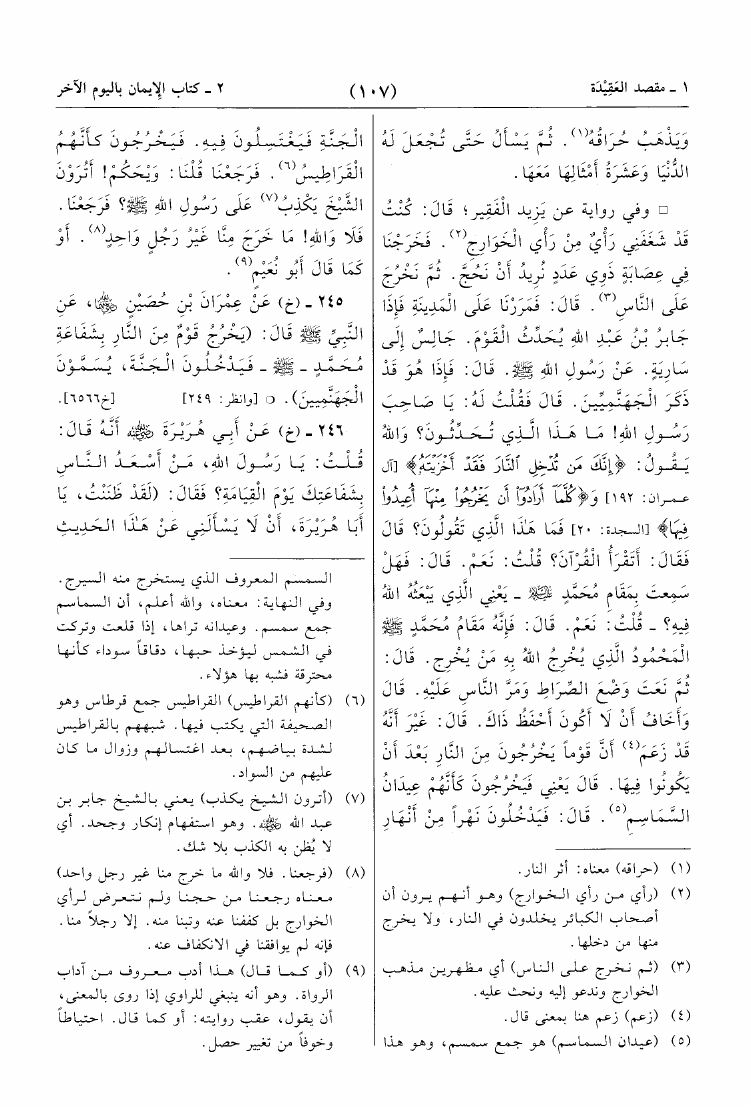 ١ ـ مقصد العَقِيْدَة
(١٠٧)
٢ ـ كتاب الإيمان باليوم الآخر
وَيَذْهَبُ حُرَاقُهُ(١). ثُمَّ يَسْأَلُ حَتَّى تُجْعَلَ لَهُ
الدُّنْيَا وَعَشَرَةُ أَمْثَالِهَا مَعَهَا.
□ وفي رواية عن يَزِيد الْفَقِير؛ قَالَ: كُنْتُ
قَدْ شَغَفَنِي رَأْيٌ مِنْ رَأْيِ الْخَوَارِجِ(٢). فَخَرَجْنَا
فِي عِصَابَةٍ ذَوِي عَدَدٍ نُرِيدُ أَنْ نَحُجَّ. ثُمَّ نَخْرُجَ
عَلَى النَّاسِ(٣). قَالَ: فَمَرَرْنَا عَلَى الْمَدِينَةِ فَإِذَا
جَابِرُ بْنُ عَبْدِ اللهِ يُحَدِّثُ الْقَوْمَ. جَالِسٌ إِلَى
سَارِيَةٍ. عَنْ رَسُولِ اللهِ ﷺ. قَالَ: فَإِذَا هُوَ قَدْ
ذَكَرَ الْجَهَنَّمِيِّينَ. قَالَ فَقُلْتُ لَهُ: يَا صَاحِبَ
رَسُولِ اللهِ! مَا هَذَا الَّذِي تُحَدِّثُونَ؟ وَاللهُ
يَقُولُ: ﴿إِنَّكَ مَن تُدْخِلِ النَّارَ فَقَدْ أَخْزَيْتَهُ﴾ [آل
عمران: ١٩٢] وَ﴿كُلَّمَا أَرَادُوا أَن يَخْرُجُوا مِنْهَا أُعِيدُوا
فِيهَا﴾ [السجدة: ٢٠] فَمَا هَٰذَا الَّذِي تَقُولُونَ؟ قَالَ
فَقَالَ: أَتَقْرَأُ الْقُرْآنَ؟ قُلْتُ: نَعَمْ. قَالَ: فَهَلْ
سَمِعتَ بِمَقَامِ مُحَمَّدٍ ﷺ ـ يَعْنِي الَّذِي يَبْعَثُهُ اللهُ
فِيهِ؟ ـ قُلْتُ: نَعَمْ. قَالَ: فَإِنَّهُ مَقَامُ مُحَمَّدٍ ﷺ
الْمَحْمُودُ الَّذِي يُخْرِجُ اللهُ بِهِ مَنْ يُخْرِجُ. قَالَ:
ثُمَّ نَعَتَ وَضْعَ الصِّرَاطِ وَمَرَّ النَّاسِ عَلَيْهِ. قَالَ
وَأَخَافُ أَنْ لَا أَكُونَ أَحْفَظُ ذَاكَ. قَالَ: غَيْرَ أَنَّهُ
قَدْ زَعَمَ(٤) أَنَّ قَوْماً يَخْرُجُونَ مِنَ النَّارِ بَعْدَ أَنْ
يَكُونُوا فِيهَا. قَالَ يَعْنِي فَيَخْرُجُونَ كَأَنَّهُمْ عِيدَانُ
السَّمَاسِمِ(٥). قَالَ: فَيَدْخُلُونَ نَهْراً مِنْ أَنْهَارِ
(١) (حراقه) معناه: أثر النار.
(٢) (رأي من رأي الخوارج) وهو أنهم يرون أن
أصحاب الكبائر يخلدون في النار، ولا يخرج
منها من دخلها.
(٣) (ثم نخرج على الناس) أي مظهرين مذهب
الخوارج وندعو إليه ونحث عليه.
(٤) (زعم) زعم هنا بمعنى قال.
(٥) (عيدان السماسم) هو جمع سمسم، وهو هذا
الْجَنَّةِ فَيَغْتَسِلُونَ فِيهِ. فَيَخْرُجُونَ كَأَنَّهُمُ
الْقَرَاطِيسُ(٦). فَرَجَعْنَا قُلْنَا: وَيْحَكُمْ! أَتُرَوْنَ
الشَّيْخَ يَكْذِبُ(٧) عَلَى رَسُولِ اللهِ ﷺ؟ فَرَجَعْنَا.
فَلَا وَاللهِ! مَا خَرَجَ مِنَّا غَيْرُ رَجُلٍ وَاحِدٍ(٨). أَوْ
كَمَا قَالَ أَبُو نُعَيْمٍ(٩).
٢٤٥ ـ (خ) عَنْ عِمْرَانَ بْنِ حُصَيْنٍ ﵄، عَنِ
النَّبِيِّ ﷺ قَالَ: (يَخْرُجُ قَوْمٌ مِنَ النَّارِ بِشَفَاعَةِ
مُحَمَّدٍ ـ ﷺ ـ فَيَدْخُلُونَ الْجَنَّةَ، يُسَمَّوْنَ
الْجَهَنَّمِيينَ). ○ [وانظر: ٢٤٩] [خ٦٥٦٦].
٢٤٦ ـ (خ) عَنْ أَبِي هُرَيْرَةَ ﵁ أَنَّهُ قَالَ:
قُلْتُ: يَا رَسُولَ اللهِ، مَنْ أَسْعَدُ النَّاسِ
بِشَفَاعَتِكَ يَوْمَ الْقِيَامَةِ؟ فَقَالَ: (لَقَدْ ظَنَنْتُ، يَا
أَبَا هُرَيْرَةَ، أَنْ لَا يَسْأَلَنِي عَنْ هَٰذَا الْحَدِيثِ
السمسم المعروف الذي يستخرج منه السيرج.
وفي النهاية: معناه، والله أعلم، أن السماسم
جمع سمسم. وعيدانه تراها، إذا قلعت وتركت
في الشمس ليؤخذ حبها، دقاقاً سوداء كأنها
محترقة فشبه بها هؤلاء.
(٦) (كأنهم القراطيس) القراطيس جمع قرطاس وهو
الصحيفة التي يكتب فيها. شبههم بالقراطيس
لشدة بياضهم، بعد اغتسالهم وزوال ما كان
عليهم من السواد.
(٧) (أترون الشيخ يكذب) يعني بالشيخ جابر بن
عبد الله ﵁. وهو استفهام إنكار وجحد. أي
لا يُظن به الكذب بلا شك.
(٨) (فرجعنا. فلا والله ما خرج منا غير رجل واحد)
معناه رجعنا من حجنا ولم نتعرض لرأي
الخوارج بل كففنا عنه وتبنا منه. إلا رجلاً منا.
فإنه لم يوافقنا في الانكفاف عنه.
(٩) (أو كما قال) هذا أدب معروف من آداب
الرواة. وهو أنه ينبغي للراوي إذا روى بالمعنى،
أن يقول، عقب روايته: أو كما قال. احتياطاً
وخوفاً من تغيير حصل.